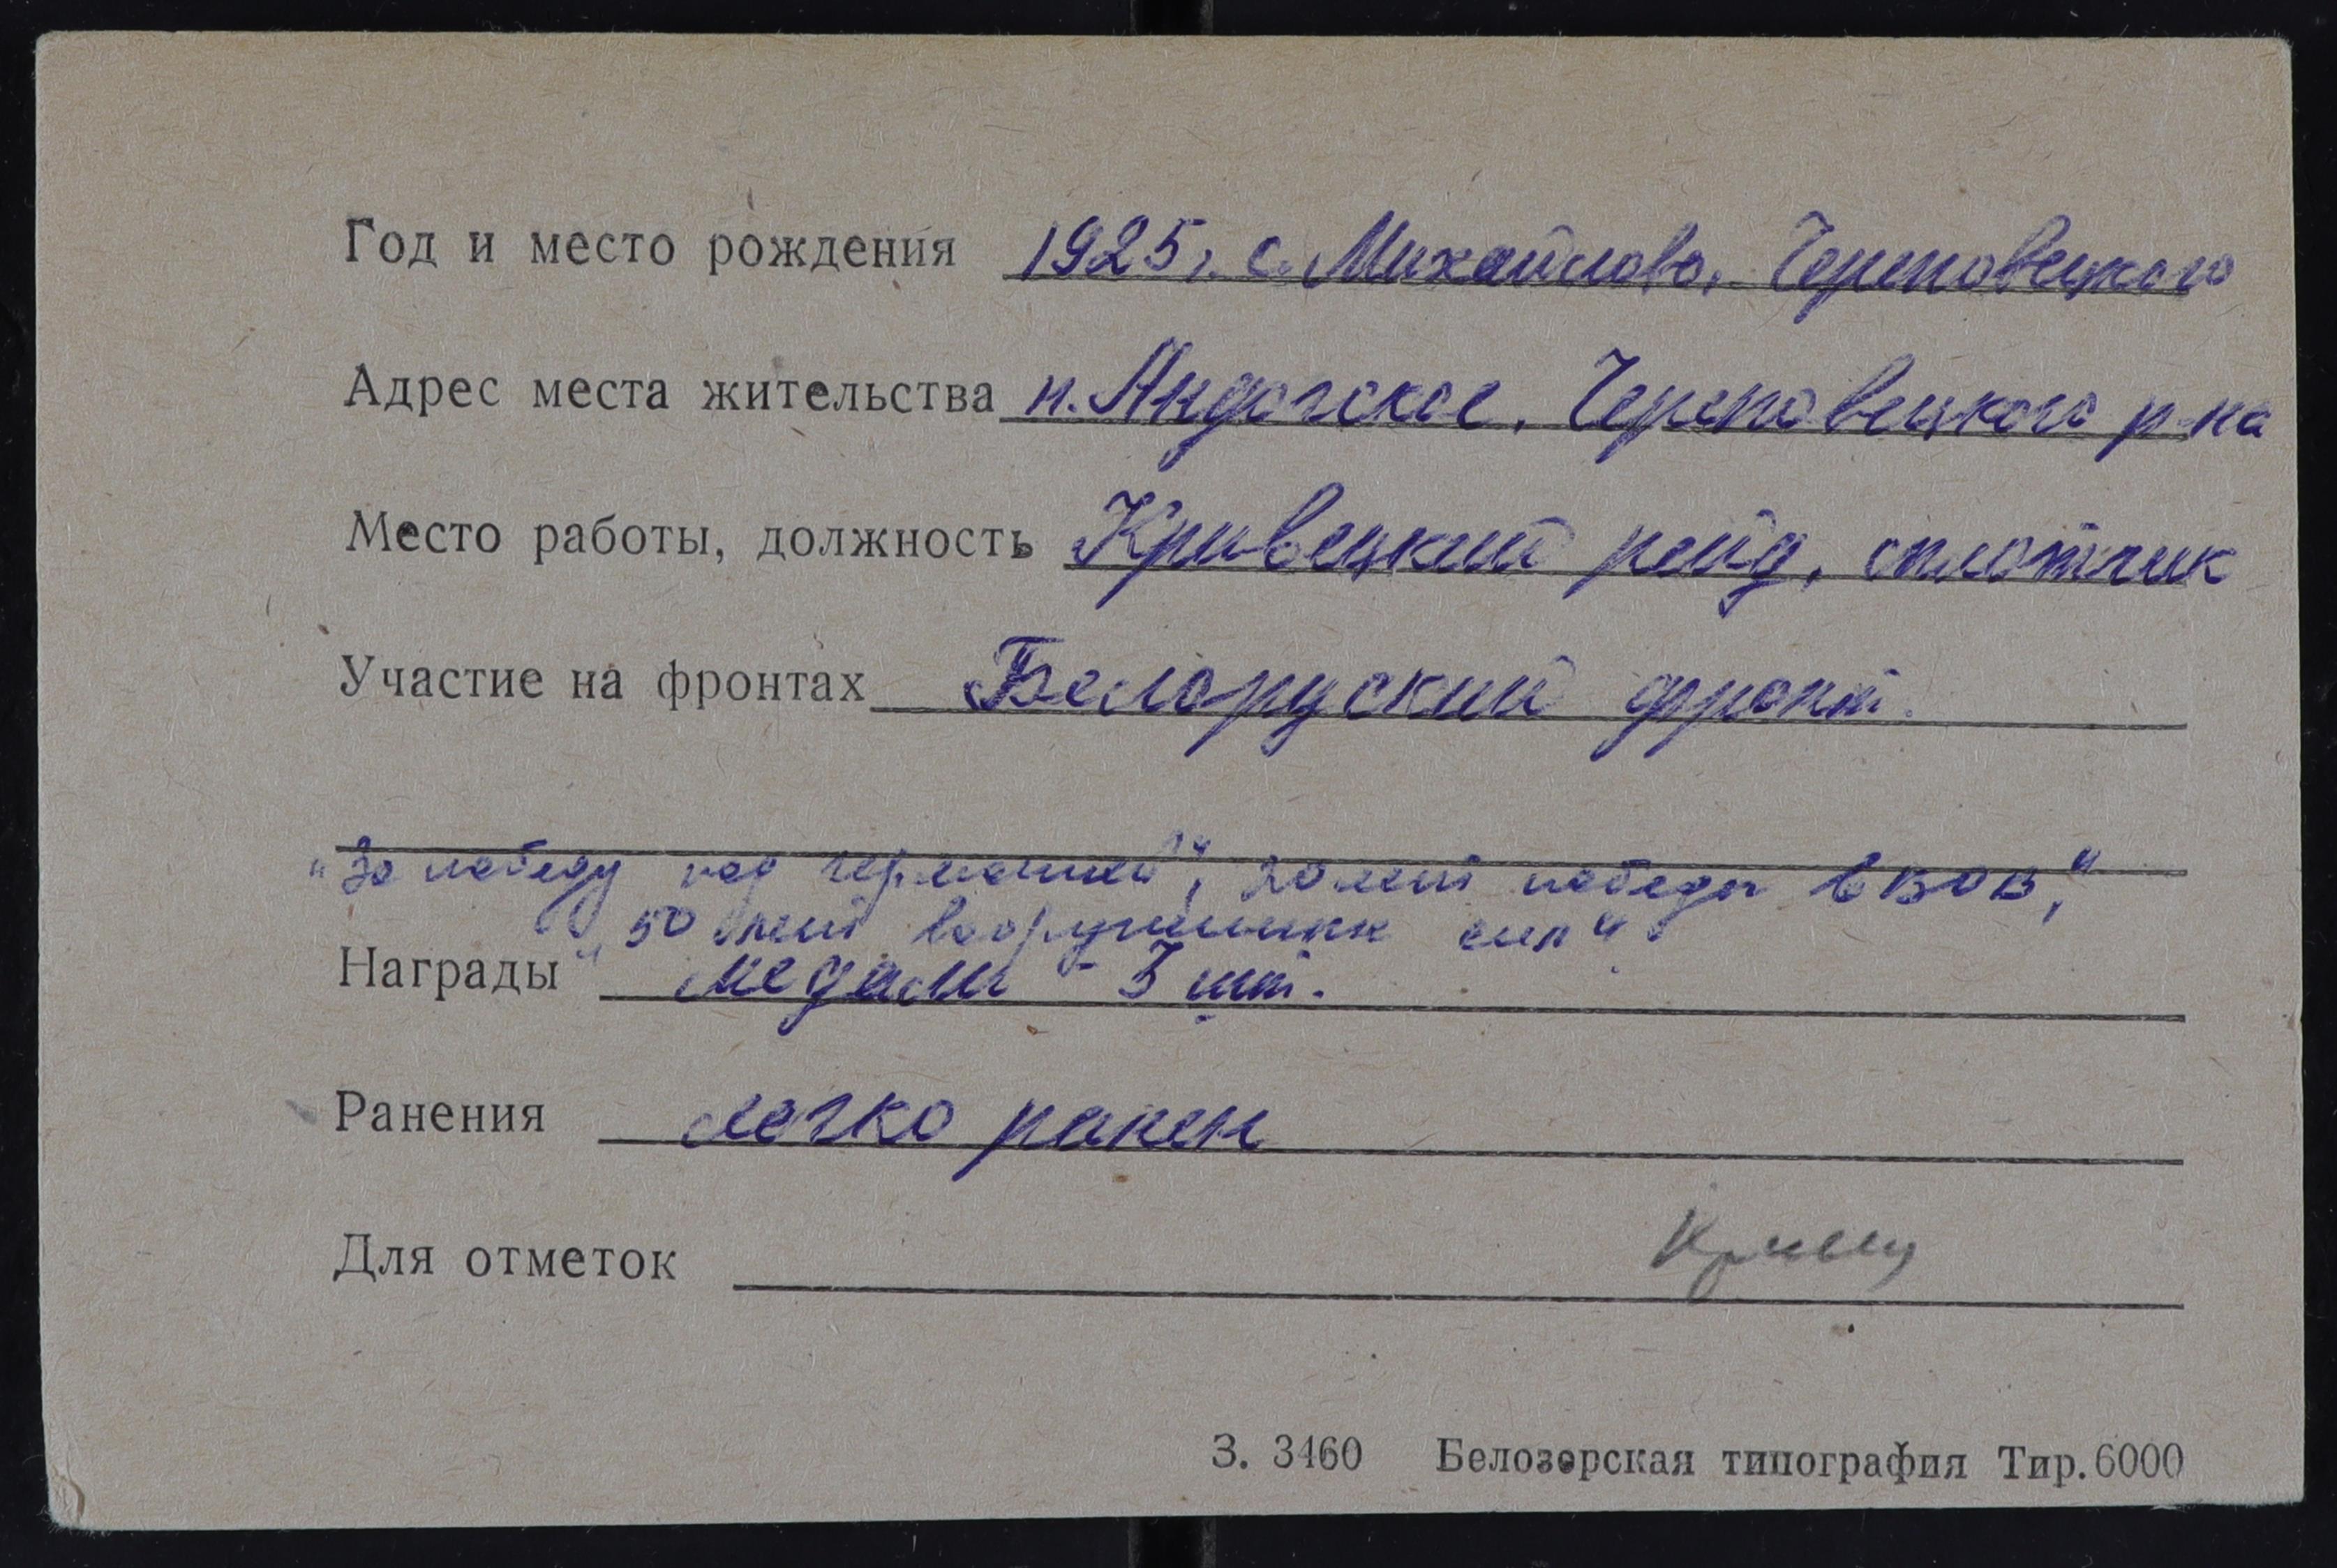 Год и место рождения 1925г. с. Михайлово, Череповецкого
Адрес места жительства п. Андогское, Череповецкого р-на
Место работы, должность Кривецкий рейд, сплотчик
Участие на фронтах Белоруский фронт.
"За победу над Германией", 20 лет победы в ВОВ,"
"50 лет вооружен сил"
Награды медали - 3 шт.
Ранения легко ранен
Для отметок
З. 3460 Белозерская типография Тир. 6000